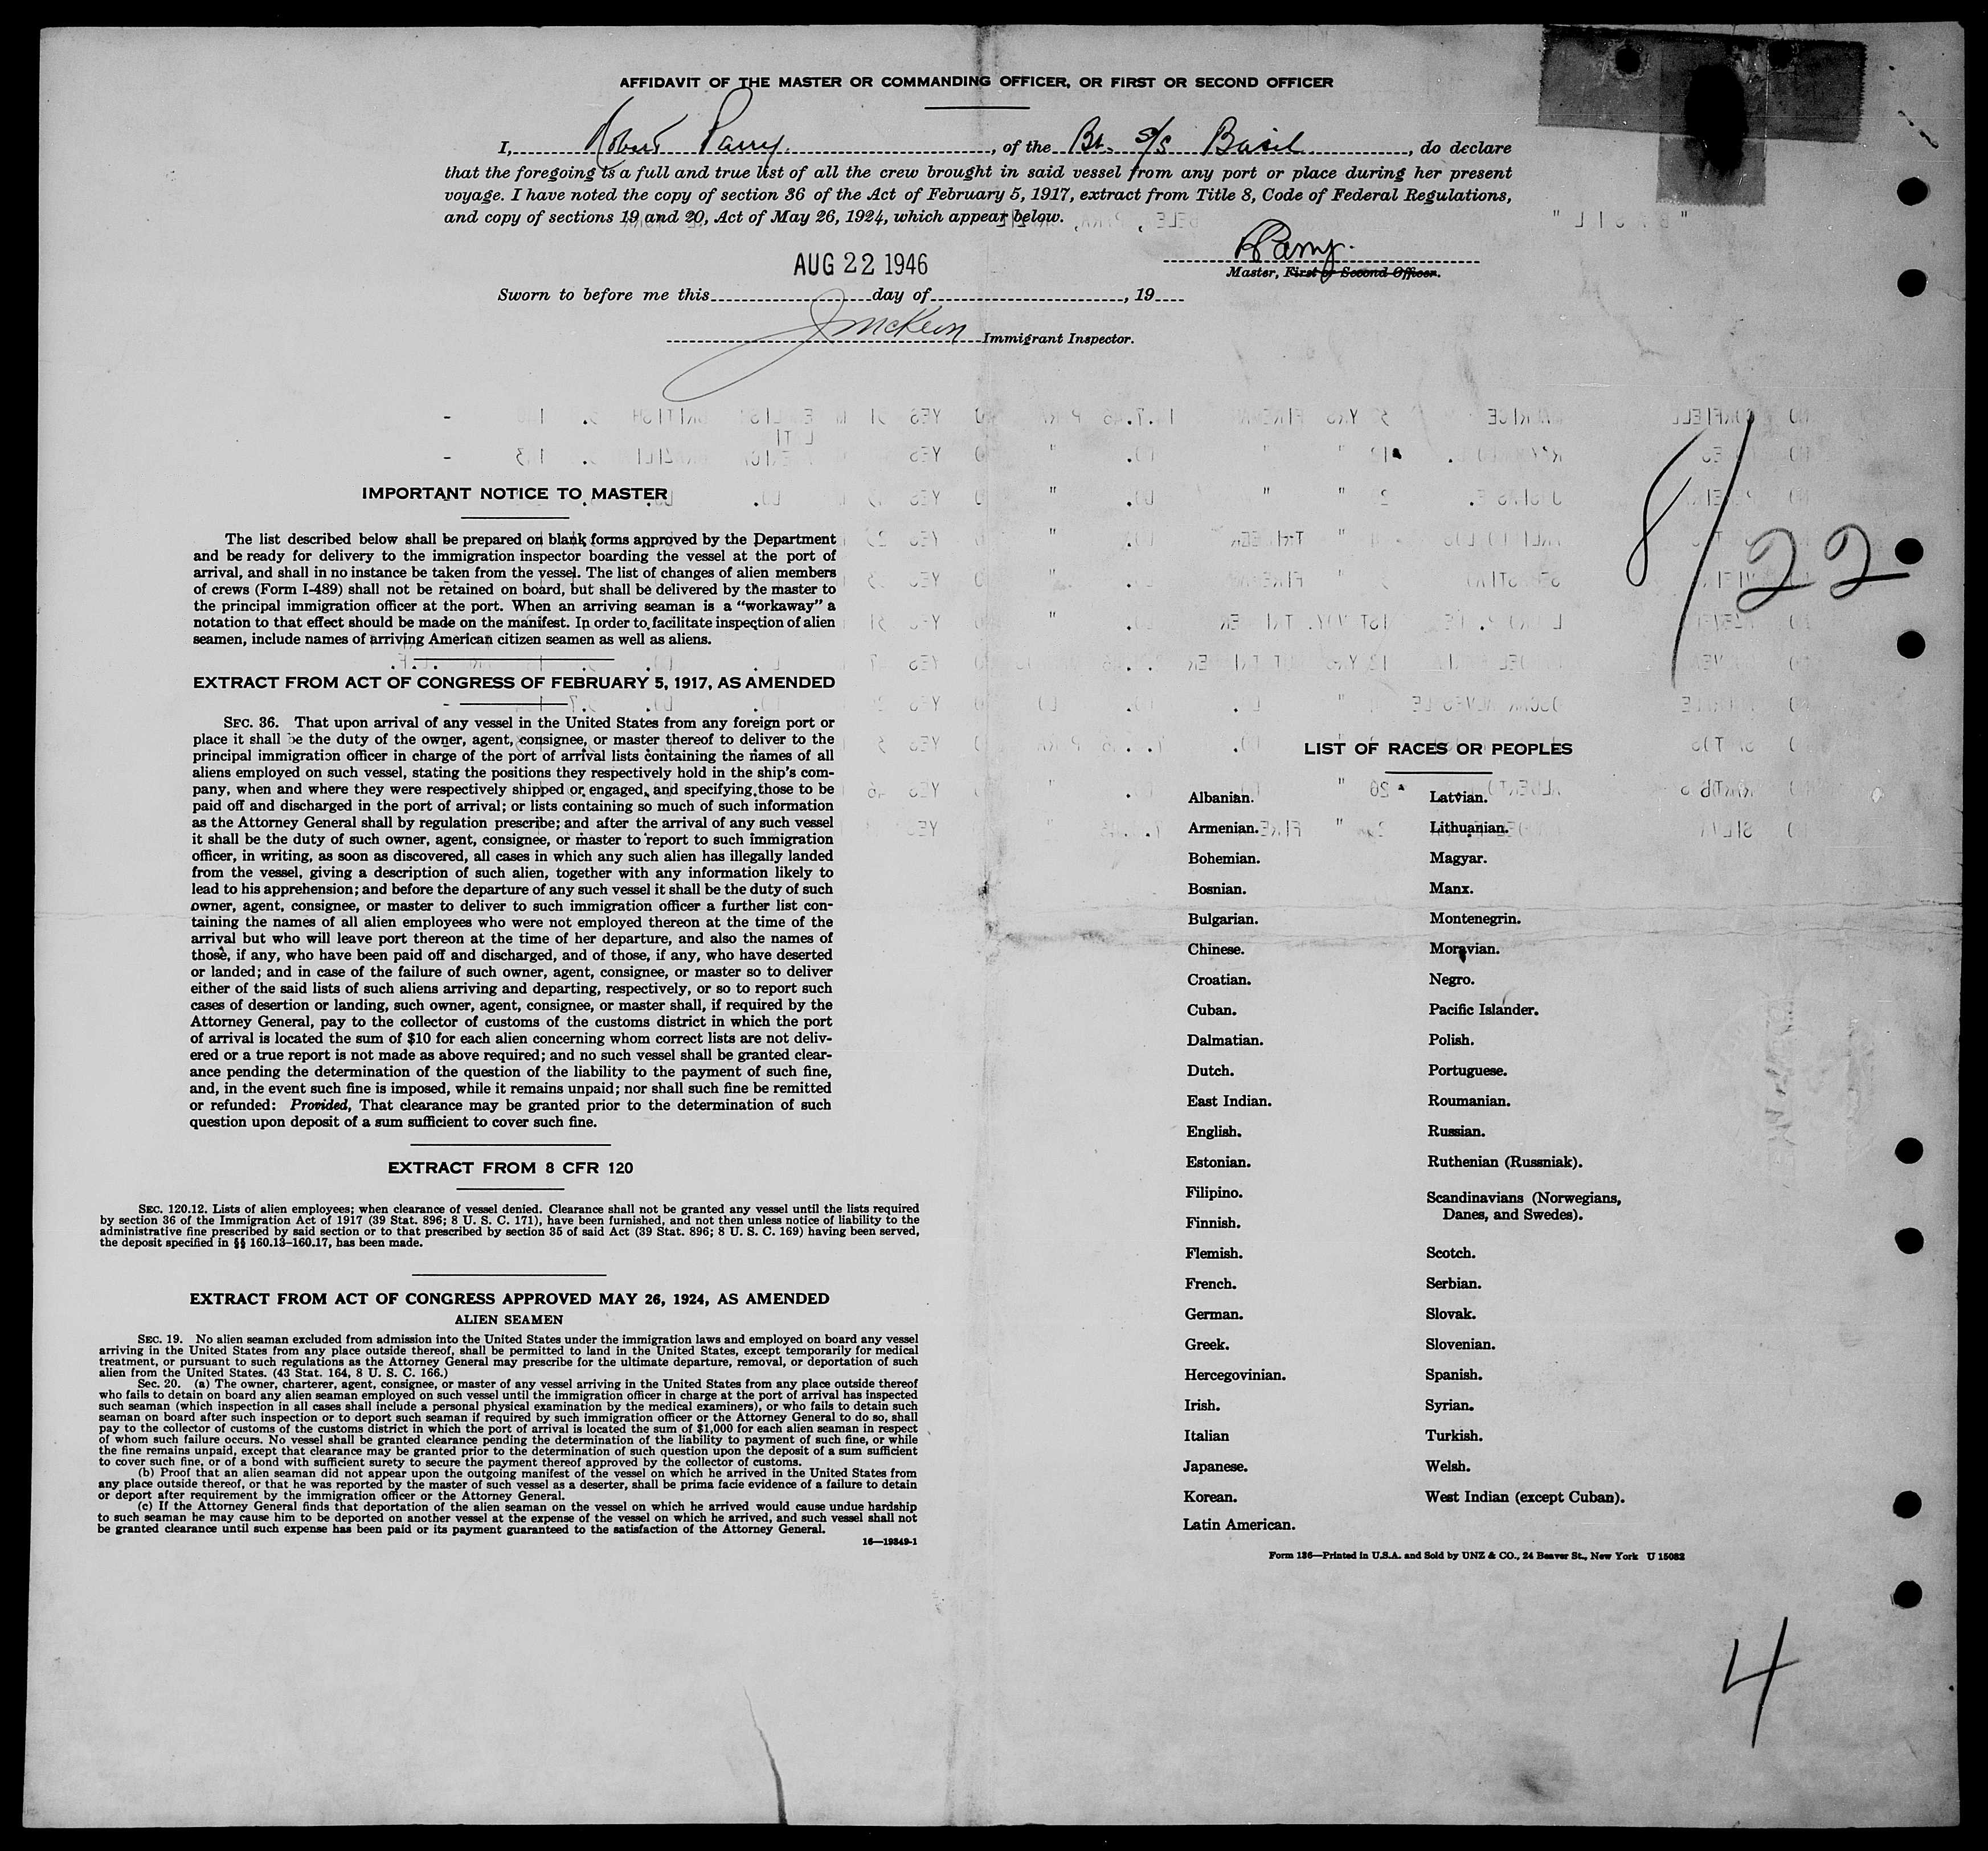 AFFIDAVIT OF THE MASTER OR COMMANDING OFFICER, OR FIRST OR SECOND OFFICER
I, Robert Parry, of the Br. s/s Basil, do declare
that the foregoing is a full and true list of all the crew brought in said vessel from any port or place during her present
voyage. I have noted the copy of section 36 of the Act of February 5, 1917, extract from Title 8, Code of Federal Regulations,
and copy of sections 19 and 20, Act of May 26, 1924, which appear below.
RParry.
Master, First or Second Officer.
AUG 22 1946
Sworn to before me this day of , 19
Immigrant Inspector.
8/22
IMPORTANT NOTICE TO MASTER
The list described below shall be prepared on blank forms approved by the Department
and be ready for delivery to the immigration inspector boarding the vessel at the port of
arrival, and shall in no instance be taken from the vessel. The list of changes of alien members
of crews (Form I-489) shall not be retained on board, but shall be delivered by the master to
the principal immigration officer at the port. When an arriving seaman is a "workaway" a
notation to that effect should be made on the manifest. In order to facilitate inspection of alien
seamen, include names of arriving American citizen seamen as well as aliens.
EXTRACT FROM ACT OF CONGRESS OF FEBRUARY 5, 1917, AS AMENDED
SEC. 36. That upon arrival of any vessel in the United States from any foreign port or
place it shall be the duty of the owner, agent, consignee, or master thereof to deliver to the
principal immigration officer in charge of the port of arrival lists containing the names of all
aliens employed on such vessel, stating the positions they respectively hold in the ship's com-
pany, when and where they were respectively shipped or engaged, and specifying those to be
paid off and discharged in the port of arrival; or lists containing so much of such information
as the Attorney General shall by regulation prescribe; and after the arrival of any such vessel
it shall be the duty of such owner, agent, consignee, or master to report to such immigration
officer, in writing, as soon as discovered, all cases in which any such alien has illegally landed
from the vessel, giving a description of such alien, together with any information likely to
lead to his apprehension; and before the departure of any such vessel it shall be the duty of such
owner, agent, consignee, or master to deliver to such immigration officer a further list con-
taining the names of all alien employees who were not employed thereon at the time of the
arrival but who will leave port thereon at the time of her departure, and also the names of
those, if any, who have been paid off and discharged, and of those, if any, who have deserted
or landed; and in case of the failure of such owner, agent, consignee, or master so to deliver
either of the said lists of such aliens arriving and departing, respectively, or so to report such
cases of desertion or landing, such owner, agent, consignee, or master shall, if required by the
Attorney General, pay to the collector of customs of the customs district in which the port
of arrival is located the sum of $10 for each alien concerning whom correct lists are not deliv-
ered or a true report is not made as above required; and no such vessel shall be granted clear-
ance pending the determination of the question of the liability to the payment of such fine,
and, in the event such fine is imposed, while it remains unpaid; nor shall such fine be remitted
or refunded: Provided, That clearance may be granted prior to the determination of such
question upon deposit of a sum sufficient to cover such fine.
EXTRACT FROM 8 CFR 120
SEC. 120.12. Lists of alien employees; when clearance of vessel denied. Clearance shall not be granted any vessel until the lists required
by section 36 of the Immigration Act of 1917 (39 Stat. 896; 8 U. S. C. 171), have been furnished, and not then unless notice of liability to the
administrative fine prescribed by said section or to that prescribed by section 35 of said Act (39 Stat. 896; 8 U. S. C. 169) having been served,
the deposit specified in §§ 160.13–160.17, has been made.
EXTRACT FROM ACT OF CONGRESS APPROVED MAY 26, 1924, AS AMENDED
ALIEN SEAMEN
SEC. 19. No alien seaman excluded from admission into the United States under the immigration laws and employed on board any vessel
arriving in the United States from any place outside thereof, shall be permitted to land in the United States, except temporarily for medical
treatment, or pursuant to such regulations as the Attorney General may prescribe for the ultimate departure, removal, or deportation of such
alien from the United States. (43 Stat. 164, 8 U. S. C. 166.)
Sec. 20. (a) The owner, charterer, agent, consignee, or master of any vessel arriving in the United States from any place outside thereof
who fails to detain on board any alien seaman employed on such vessel until the immigration officer in charge at the port of arrival has inspected
such seaman (which inspection in all cases shall include a personal physical examination by the medical examiners), or who fails to detain such
seaman on board after such inspection or to deport such seaman if required by such immigration officer or the Attorney General to do so, shall
pay to the collector of customs of the customs district in which the port of arrival is located the sum of $1,000 for each alien seaman in respect
of whom such failure occurs. No vessel shall be granted clearance pending the determination of the liability to payment of such fine, or while
the fine remains unpaid, except that clearance may be granted prior to the determination of such question upon the deposit of a sum sufficient
to cover such fine, or of a bond with sufficient surety to secure the payment thereof approved by the collector of customs.
(b) Proof that an alien seaman did not appear upon the outgoing manifest of the vessel on which he arrived in the United States from
any place outside thereof, or that he was reported by the master of such vessel as a deserter, shall be prima facie evidence of a failure to detain
or deport after requirement by the immigration officer or the Attorney General.
(c) If the Attorney General finds that deportation of the alien seaman on the vessel on which he arrived would cause undue hardship
to such seaman he may cause him to be deported on another vessel at the expense of the vessel on which he arrived, and such vessel shall not
be granted clearance until such expense has been paid or its payment guaranteed to the satisfaction of the Attorney General.
16—19849-1
LIST OF RACES OR PEOPLES
Albanian.
Armenian.
Bohemian.
Bosnian.
Bulgarian.
Chinese.
Croatian.
Cuban.
Dalmatian.
Dutch.
East Indian.
English.
Estonian.
Filipino.
Finnish.
Flemish.
French.
German.
Greek.
Hercegovinian.
Irish.
Italian
Japanese.
Korean.
Latin American.
Latvian.
Lithuanian.
Magyar.
Manx.
Montenegrin.
Moravian.
Negro.
Pacific Islander.
Polish.
Portuguese.
Roumanian.
Russian.
Ruthenian (Russniak).
Scandinavians (Norwegians,
Danes, and Swedes).
Scotch.
Serbian.
Slovak.
Slovenian.
Spanish.
Syrian.
Turkish.
Welsh.
West Indian (except Cuban).
Form 136—Printed in U.S.A. and Sold by UNZ & CO., 24 Beaver St., New York U 15082
4